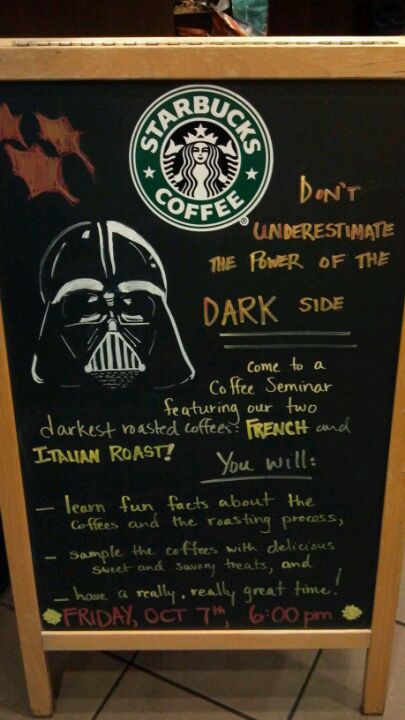 STARBUCKS
COFFEE
®
DON'T
UNDERESTIMATE
THE POWER OF THE
DARK SIDE
come to a
Coffee Seminar
featuring our two
darkest roasted coffees: FRENCH and
ITALIAN ROAST!
You will:
— learn fun facts about the
coffees and the roasting process,
— sample the coffees with delicious
sweet and savory treats, and
— have a really, really great time!
FRIDAY, OCT 7th, 6:00 pm